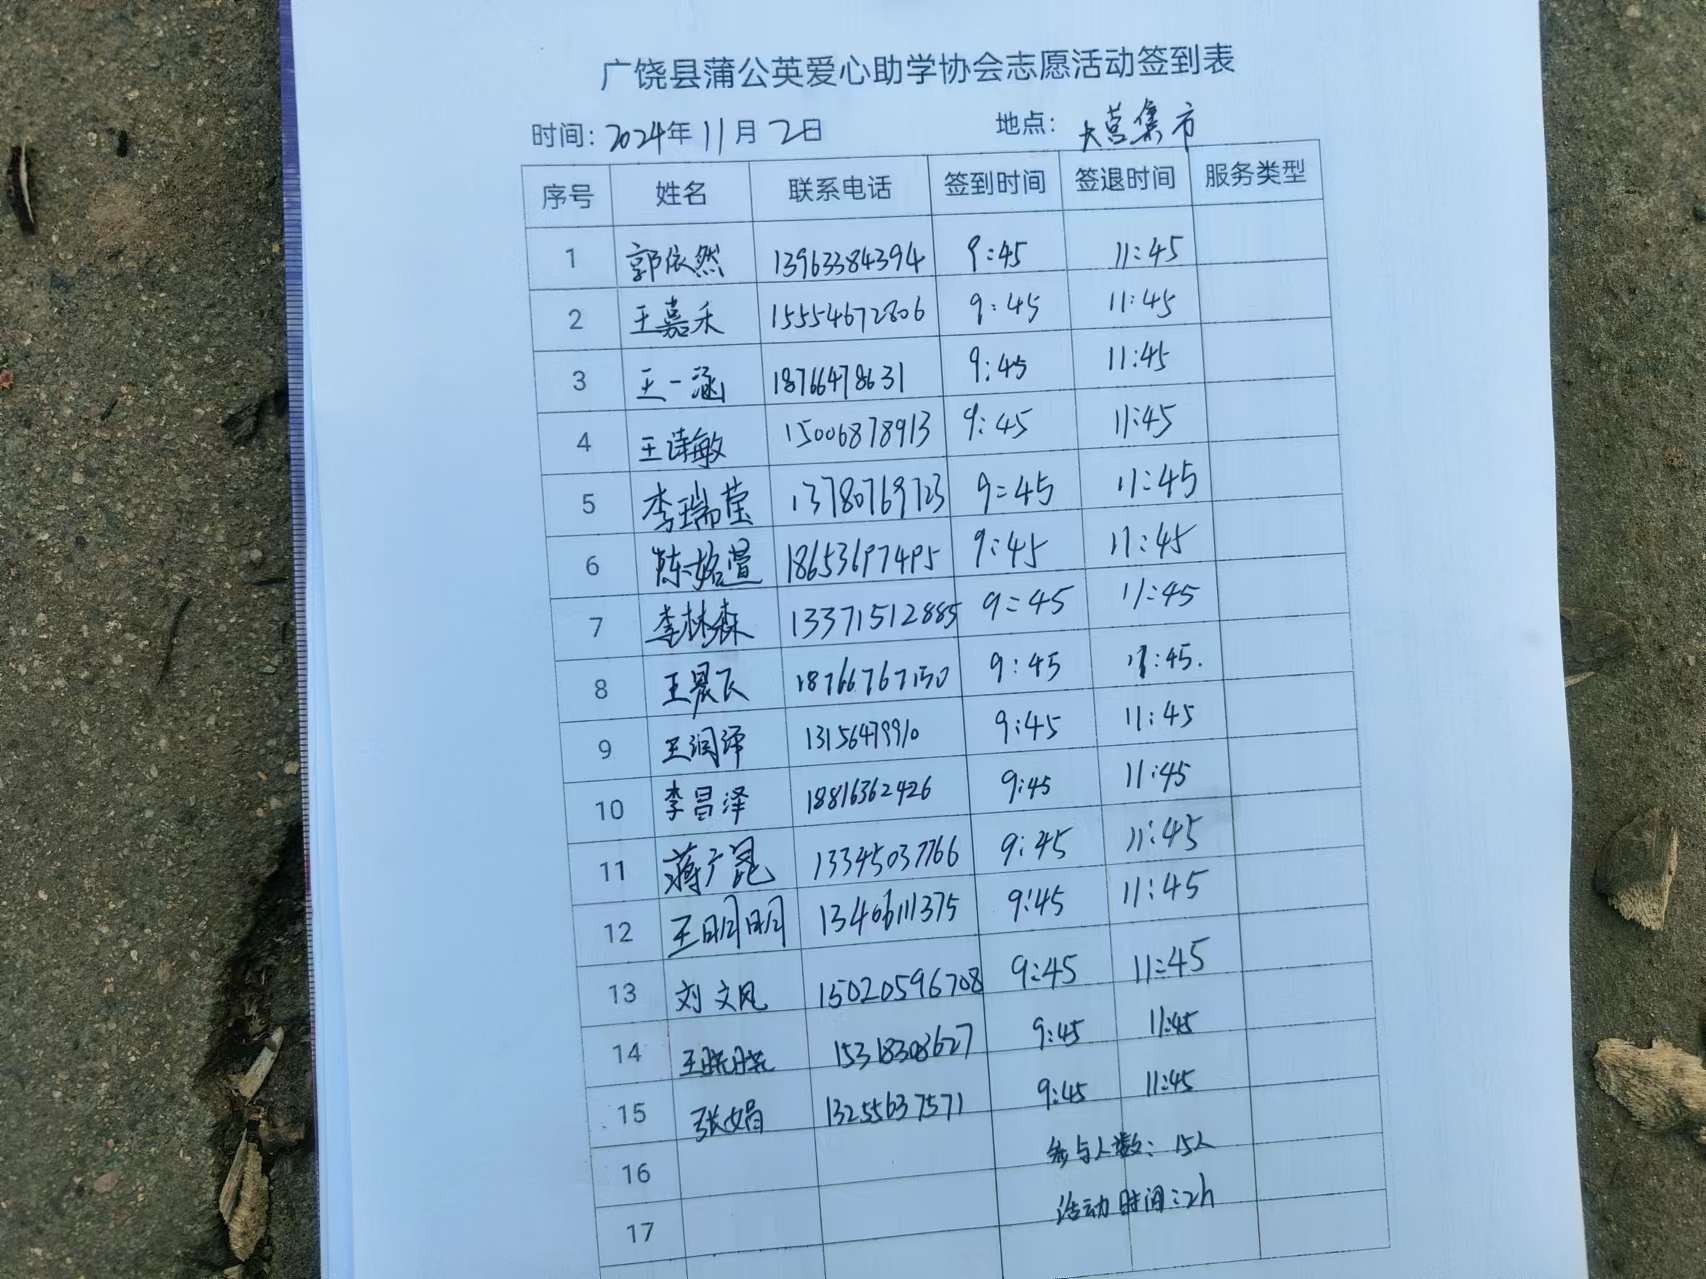 广饶县蒲公英爱心助学协会志愿活动签到表
时间：2024年11月2日 地点：大营集市
序号 姓名 联系电话 签到时间 签退时间 服务类型
1 郭依然 13963384394 9:45 11:45
2 王嘉禾 15554672806 9:45 11:45
3 王一涵 18766478631 9:45 11:45
4 王诗敏 15006878913 9:45 11:45
5 李瑞莹 13780769723 9:45 11:45
6 陈姳萱 18653697495 9:45 11:45
7 李林森 13371512885 9:45 11:45
8 王晨飞 18766767150 9:45 11:45.
9 王润泽 13156479910 9:45 11:45
10 李昌泽 18816362426 9:45 11:45
11 蒋广昆 13345037766 9:45 11:45
12 王明明 13406111375 9:45 11:45
13 刘文凤 15020596708 9:45 11:45
14 王晓晓 15318308627 9:45 11:45
15 张娟 13255637571 9:45 11:45
16 参与人数：15人
17 活动时间：2h